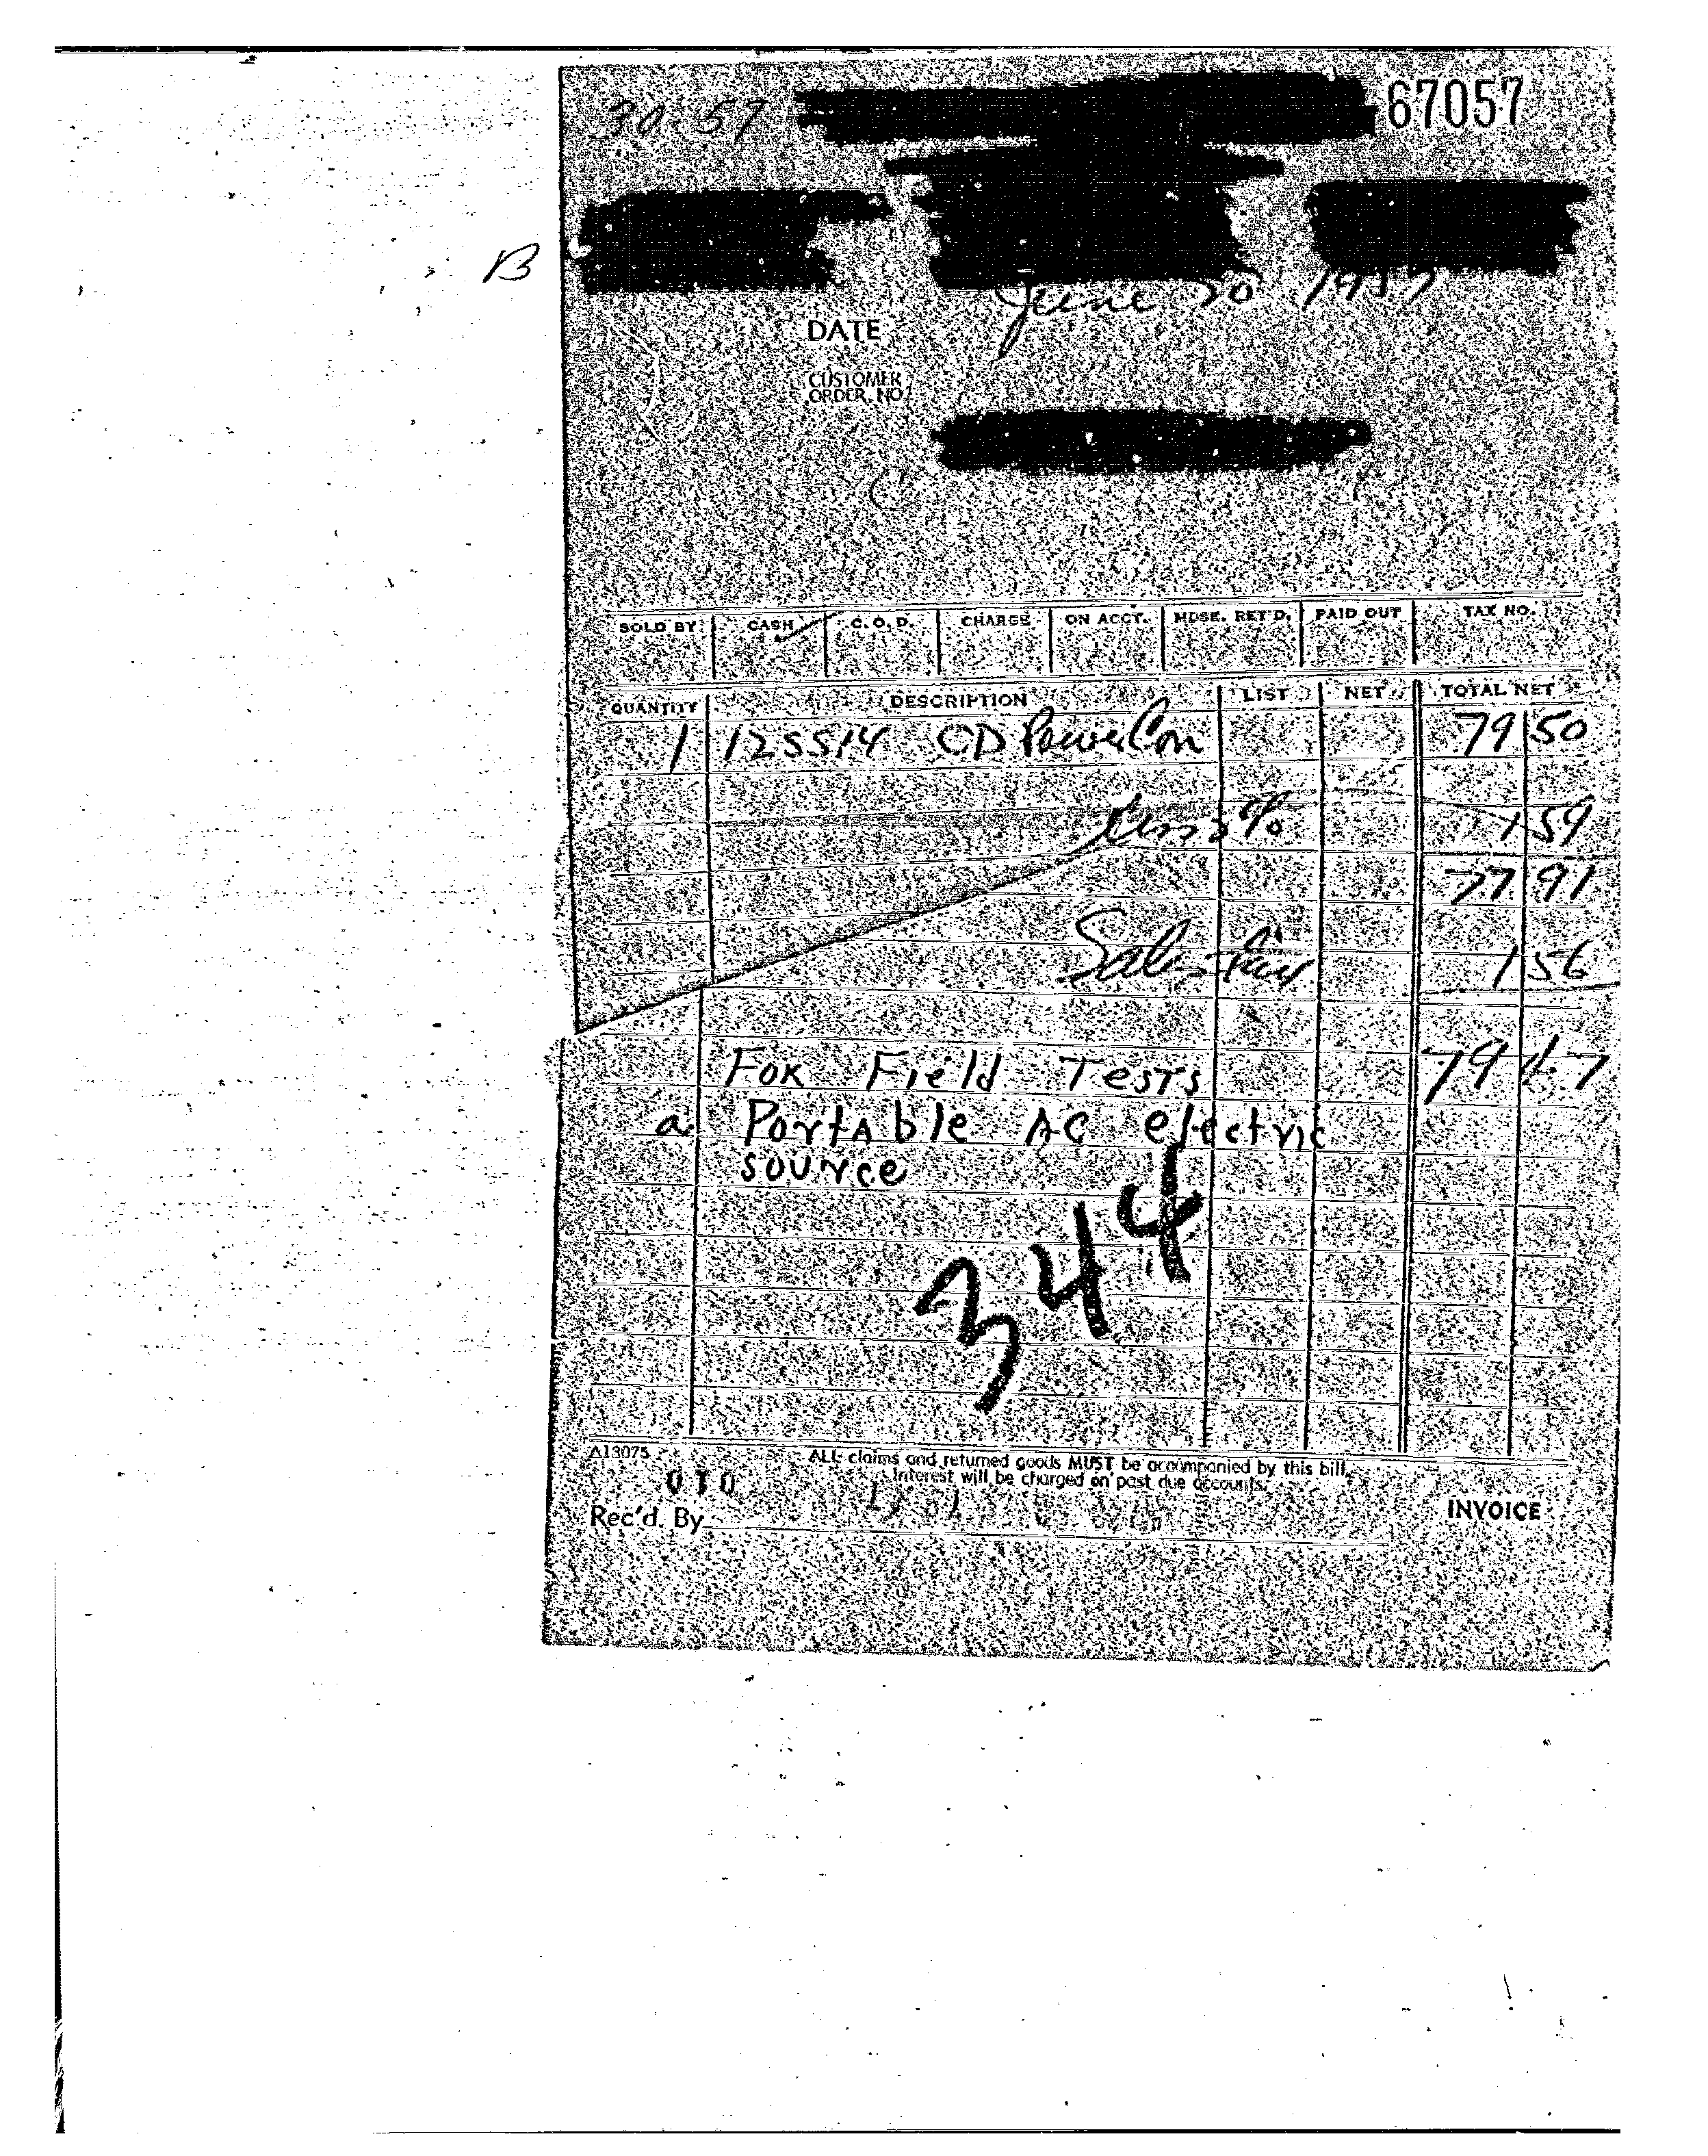 67057
B
June 20 1957
DATE
CUSTOMER
ORDER NO.
SOLD BY CASH C. O. D. CHARGE ON ACCT. MDSE. RET'D. PAID OUT TAX NO.
QUANTITY DESCRIPTION LIST NET TOTAL NET
1 12SS14 CD PowerCon 79 50
Less 2% 1 59
77 91
Sales Tax 1 56
For Field Tests 79 47
a Portable AC electric
source
344
A13075
ALL claims and returned goods MUST be accompanied by this bill.
Interest will be charged on past due accounts.
Rec'd. By
INVOICE